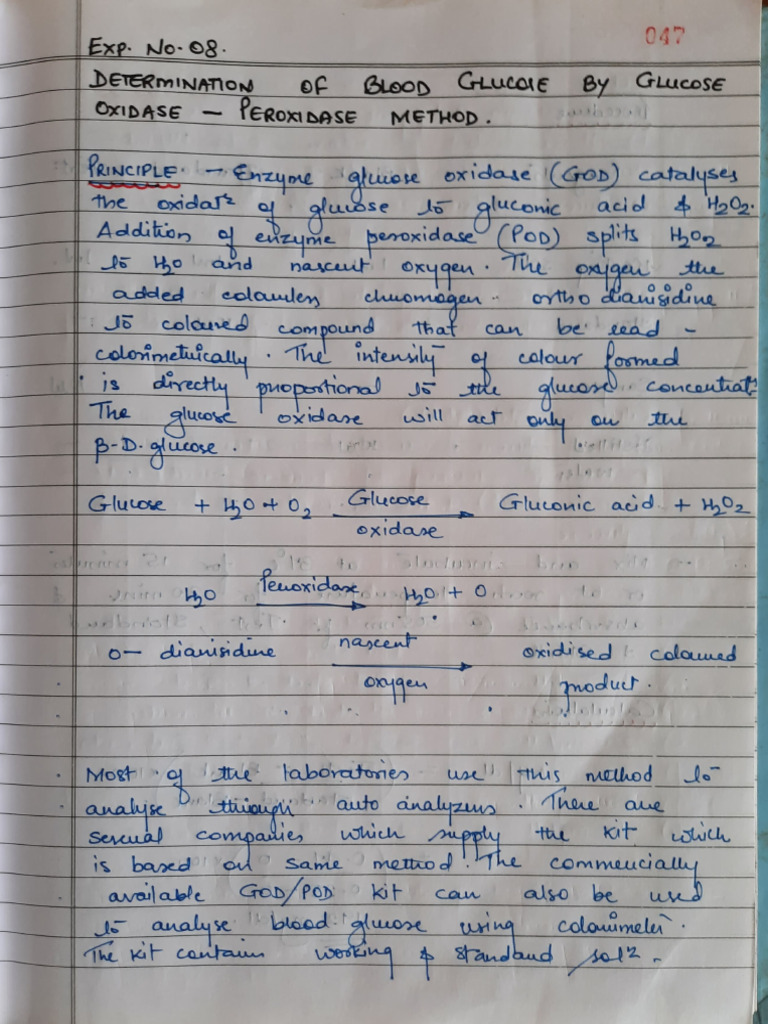 047
EXP. NO. 08.
DETERMINATION OF BLOOD GLUCOSE BY GLUCOSE
OXIDASE – PEROXIDASE METHOD.
PRINCIPLE – Enzyme glucose oxidase (GOD) catalyses
the oxidatⁿ of glucose to gluconic acid & H2O2.
Addition of enzyme peroxidase (POD) splits H2O2
to H2O and nascent oxygen. The oxygen the
added colourless chromogen ortho dianisidine
to coloured compound that can be read –
colorimetrically. The intensity of colour formed
is directly proportional to the glucose concentratⁿ
The glucose oxidase will act only on the
β-D. glucose.
Glucose + H2O + O2 Glucose → Gluconic acid + H2O2
oxidase
H2O Peroxidase → H2O + O
o– dianisidine nascent → oxidised coloured
oxygen product.
Most of the laboratories use this method to
analyse through auto analyzers. There are
several companies which supply the kit which
is based on same method. The commercially
available GOD/POD kit can also be used
to analyse blood glucose using colorimeter.
The kit contains working & standard solⁿ.